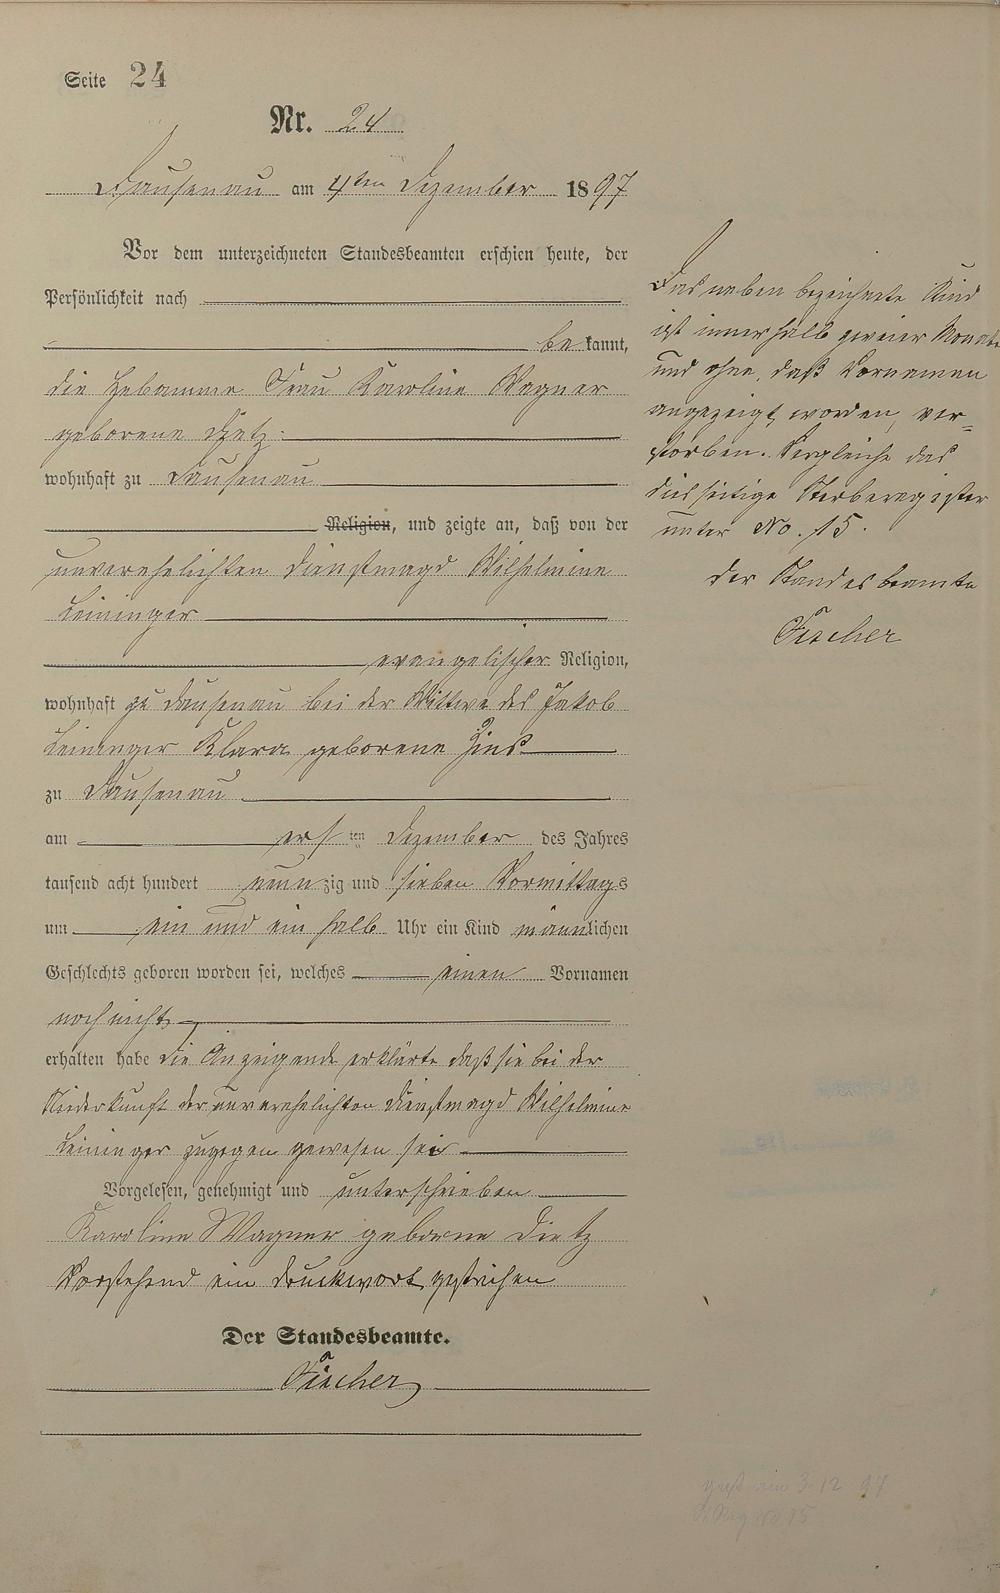 Seite 24
Nr. 24
Dausenau am 4ten Dezember 1897
Vor dem unterzeichneten Standesbeamten erschien heute, der
Persönlichkeit nach
be kannt,
die Hebamme Frau Karoline Wagner
geborene Dietz
wohnhaft zu Dausenau
Religion, und zeigte an, daß von der
unverehelichten Dienstmagd Wilhelmine
Leininger
evangelischer Religion,
wohnhaft zu Dausenau bei der Wittwe des Jakob
Leininger Klara geborene
zu Dausenau
am ersten Dezember des Jahres
tausend acht hundert neunzig und sieben Vormittags
um ein und ein halb Uhr ein Kind männlichen
Geschlechts geboren worden sei, welches einen Vornamen
noch nicht
erhalten habe die Anzeigende erklärte daß sie bei der
Niederkunft der unverehelichten Dienstmagd Wilhelmine
Leininger zugegen gewesen sei
Vorgelesen, genehmigt und unterschrieben
Karoline Wagner geborne Dietz
Vorstehend ein Druckwort gestrichen
Der Standesbeamte.
Fischer
Das neben bezeichnete Kind
ist innerhalb zweier Monate
und ohne, daß Vornamen
angezeigt worden, ver=
storben. Vergleiche das
diesseitige Sterberegister
unter No. 15.
Der Standesbeamte
Fischer
3.12 97
No 15